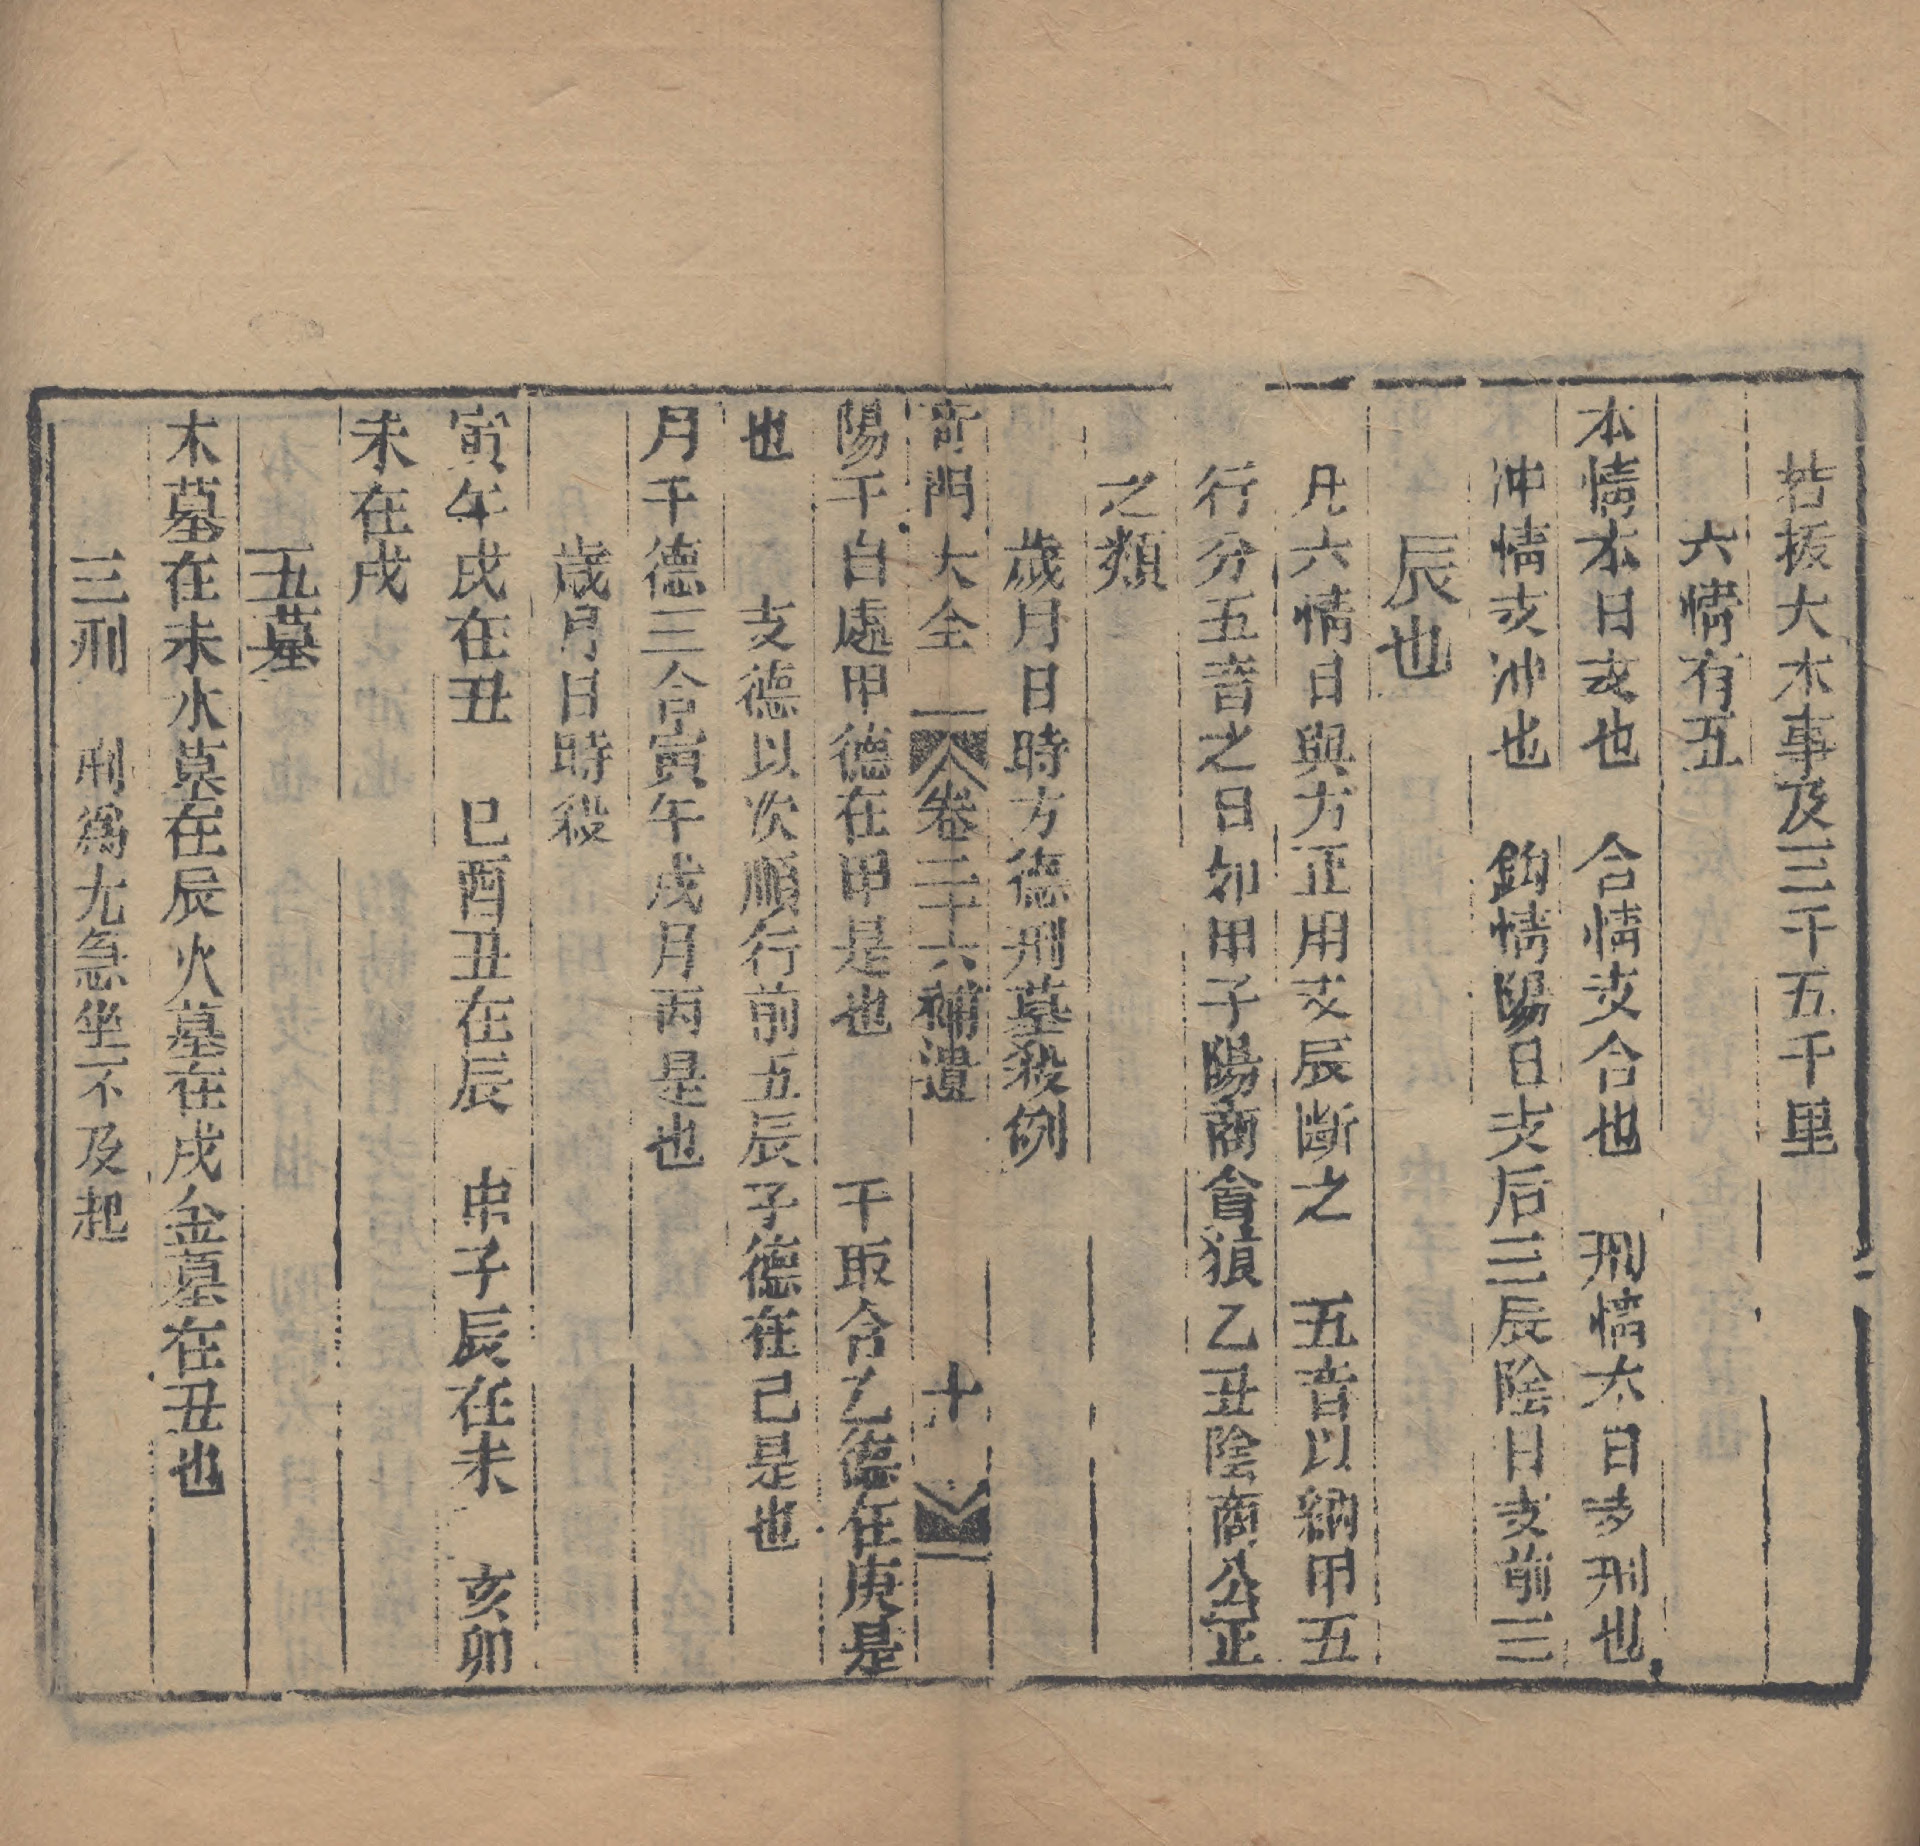 若拔大木事及三千五千里
六情有五
本情本日支也　合情支合也　刑情本日支刑也
冲情支冲也　鈎情陽日支后三辰陰日支前三
辰也
凡六情日與方正用支辰断之　五音以納甲五
行分五音之日如甲子陽商會狼乙丑陰商公正
之類
歲月日時方德刑墓殺例
奇門大全　卷二十六補遺　十
陽干自處甲德在甲是也　干取合乙德在庚是
也　支德以次順行前五辰子德在己是也
月干德三合寅午戌月丙是也
歲月日時殺
寅午戌在丑　巳酉丑在辰　申子辰在未　亥卯
未在戌
五墓
木墓在未水墓在辰火墓在戌金墓在丑也
三刑　刑爲尤急坐不及起